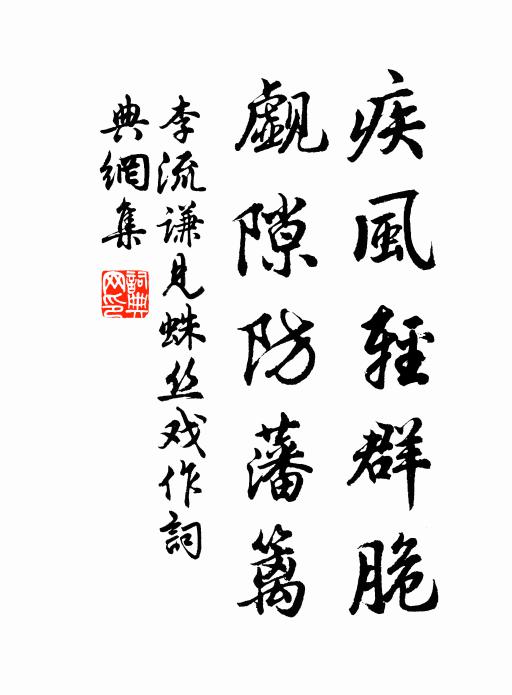 疾風輕群脆
覷隙防藩籬
李流謙見蛛丝戏作詞
典網集
詞典网印